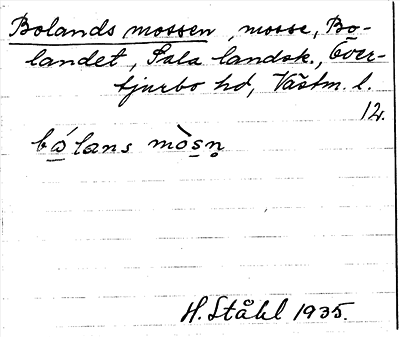 Bolands mossen, mosse, Bo-
landet, Sala landsk., Över-
tjurbo hd, Västm. l.
12.
bo̱´lans mòs̱n̥
H. Ståhl 1935.